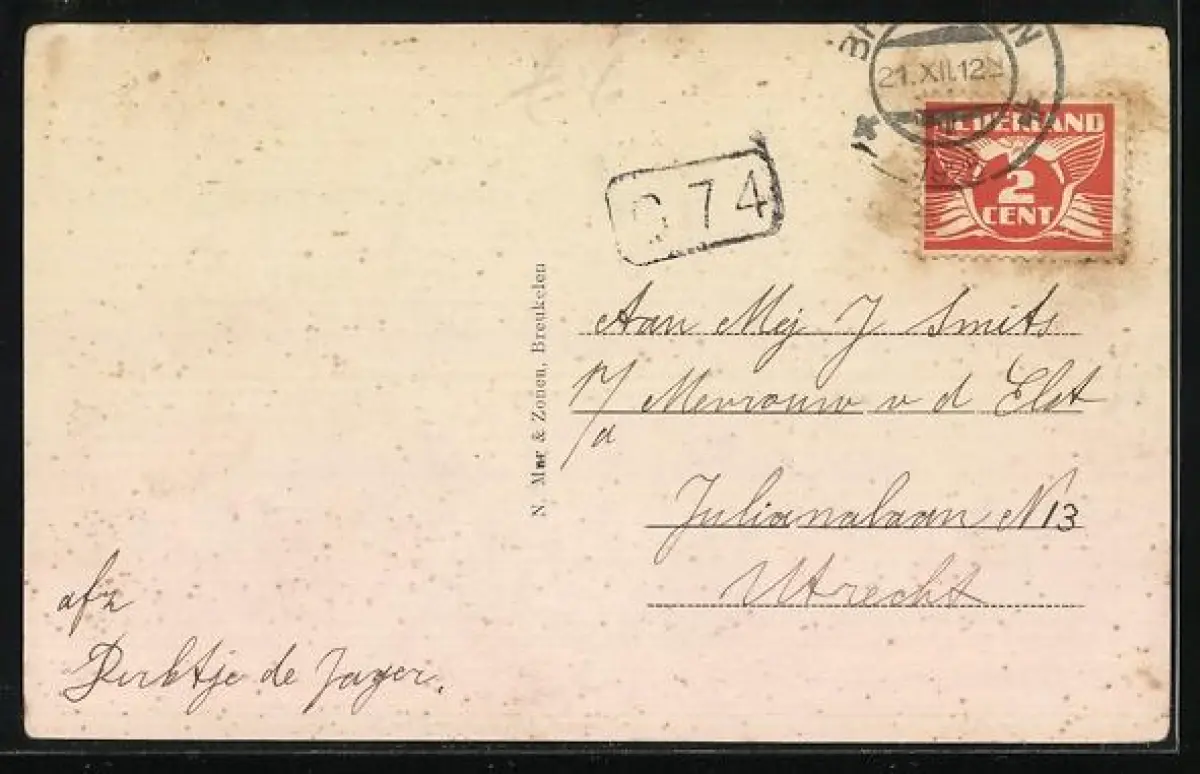 21.XII.12
NEDERLAND
2
CENT
74
Aan Mej J Smits
p/a Mevrouw v d Elst
Julianalaan N 13
Utrecht
N. & Zonen, Breukelen
afz
Dirktje de Jager.